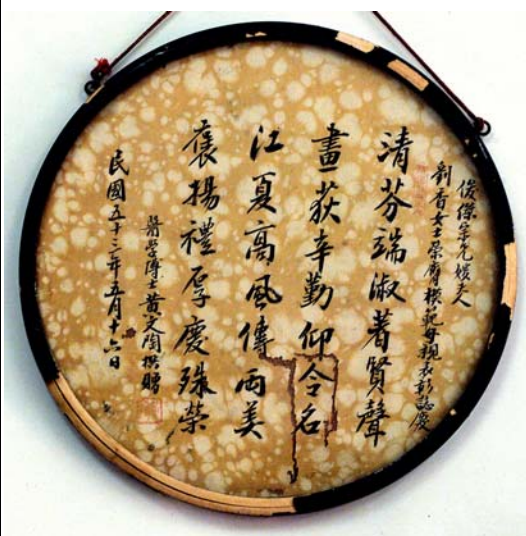 俊傑宗兄嫂夫
劉香女士榮膺模範母親表彰誌慶
清芬端淑著賢聲
畫荻辛勤仰令名
江夏高風傳兩美
褒揚禮厚慶殊榮
醫學博士黃文陶撰贈
民國五十三年五月十六日